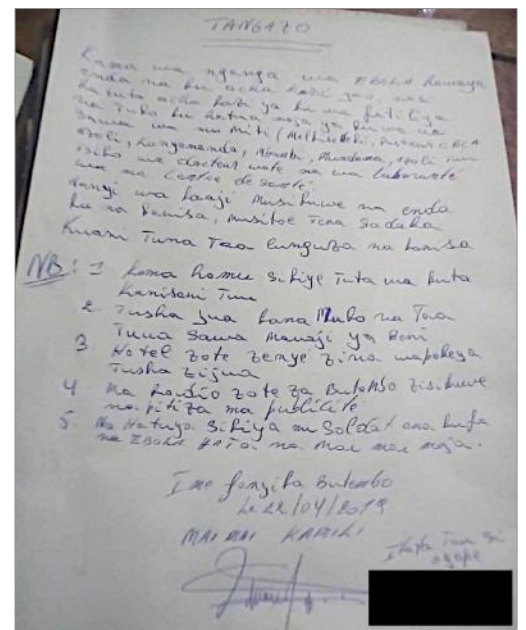 TANGAZO
Kama wa nganga wa EBOLA hawaya
enda na ku acha kazi yao, nasi
hatuta acha kazi ya ku wa fatiliya
na Tuko ku hatua moja ya ku wa ua
Sawa wa mu Miti (Melkisedeki, Pasteur CBCA
, Kangamanda, Mbumbi, Mundama,
siku wa docteur wote na wa laboranté
wa ma Centre de santé.
Nanyi wa Raaji Musikuwe na enda
ku sa kanisa, musitoe Tena Sadaka
Kwani Tuna Taa kunguza na kanisa
NB: 1 Kama hamu Sikiye Tuta wa kuta
Kanisani Tuu
2. Tusha jua kana Muko na Taa
Tuua Sawa Mauaji ya Beni
3. Hotel zote zenye zina wapokeya
Tusha zijua
4 Ma Radio zote za Butembo zisikuwe
na pitiza ma publicité
5. Na Hatuya Sikiya mu Soldat ana kufa
na EBOLA HATA na Mai mai moja.
Ime fanyika Butembo
Le 22/04/2019
MAI MAI KAMILI
Tuu Si
ogope